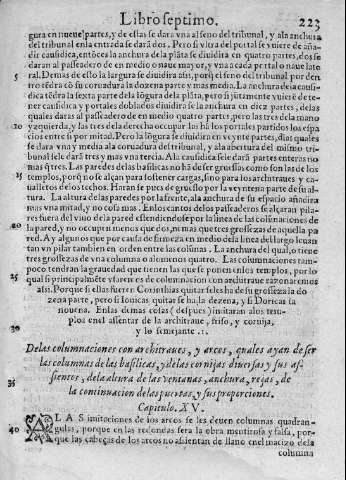 Libro septimo. 223
gura en nueue partes, y de ellas se dara vna al seno del tribunal, y ala anchura
del tribunal enla entrada se dará dos. Pero si vltra del portal se vuiere de aña-
dir causidica, entõces la anchura de la plãta se diuidira en quatro partes, dos se
daran al passeadero de en medio o naue mayor, y vna a cada portal o naue late
5 ral. Demas de esso la largura se diuidira assi, porq̃ el seno del tribunal por den
tro tẽdra cõ su coruadura la dozena parte y mas media. La anchura de la causi-
dica tẽdra la sexta parte de la lõgura de la plãta, pero si juntamente vuiere de te-
ner causidica y portales doblados diuidirse ha la anchura en diez partes, delas
quales daras al passeadero de en medio quatro partes, pero las tres dela mano
10 yzquierda, y las tres dela derecha occupar las hã los portales partidos los espa
cios entre si por mitad. Pero la lõgura se diuidira en veynte partes, dlas quales
se dara vna y media ala coruadura del tribunal, y ala abertura del mismo tri-
bunal sele dará tres y mas vna tercia. Ala causidica sele dará partes enteras no
mas q̃ tres. Las paredes delas basilicas no hã de ser gruessas como son las de los
15 templos, porq̃ no se alçan para sostener cargas, sino para los architraues y ca-
ualletes de los techos. Haran se pues de gruesso por la veyntena parte de su al-
tura. La altura de las paredes por la frente, ala anchura de su espacio añadira
mas vna mitad, y no cosa mas. Enlos cantos delos passeaderos se alçaran pila-
res fuera del viuo de la pared estendiendose por la linea de las colũnaciones de
20 la pared, y no occupen menos que dos, ni mas que tres grossezas de aquella pa
red. Ay algunos que por causa de firmeza en medio dela linea del largo leuan
tan vn pilar tambien en orden entre las colũnas. La anchura del qual, o tiene
tres grossezas de vna columna o alomenos quatro. Las columnaciones tam-
poco tendran la grauedad que tienen las que se ponen enlos templos, por lo
25 qual si principalmẽte vsaremos de columnacion con architraue razonaremos
assi. Porque si ellas fueren Corinthias quitarseles ha de su grosseza la do
zena parte, pero si Ionicas quitar se ha la dezena, y si Doricas la
nouena. Enlas demas cosas (despues) imitaran alos tem-
plos enel assentar de la architraue, friso, y cornija,
30 y lo semejante .:.
De las columnaciones con architraues, y arcos, quales ayan de ser
las columnas de las basilicas, y delas cornijas diuersas y sus as-
sientos, de la altura de las ventanas, anchura, rejas, de
35 la continuacion de las puertas, y sus proporciones.
Capitulo. XV.
A LAS imitaciones de los arcos se les deuen columnas quadran-
40 gulas, porque en las redondas sera la obra mentirosa y falsa, por-
que las cabeças de los arcos no assientan de llano enel macizo dela
columna